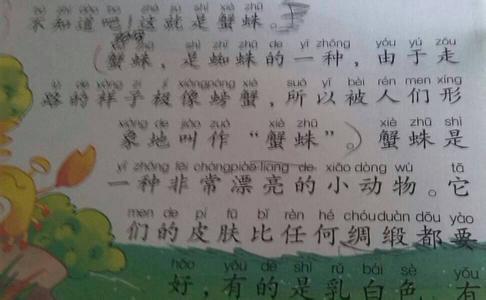 bù zhī dào ba zhè jiù shì xiè zhū
不知道吧！这就是蟹蛛。
zhū shì zhī zhū de yì zhǒng yóu yú zǒu
蟹蛛，是蜘蛛的一种，由于走
lù de yàng zi jí xiàng páng xiè suǒ yǐ bèi rén men xíng
路的样子极像螃蟹，所以被人们形
xiàng de jiào zuò xiè zhū xiè zhū shì
象地叫作“蟹蛛”。蟹蛛是
yì zhǒng fēi cháng piào liang de xiǎo dòng wù tā
一种非常漂亮的小动物。它
men de pí fū bǐ rèn hé chóu duàn dōu yào
们的皮肤比任何绸缎都要
hǎo yǒu de shì rǔ bái sè yǒu
好，有的是乳白色，有